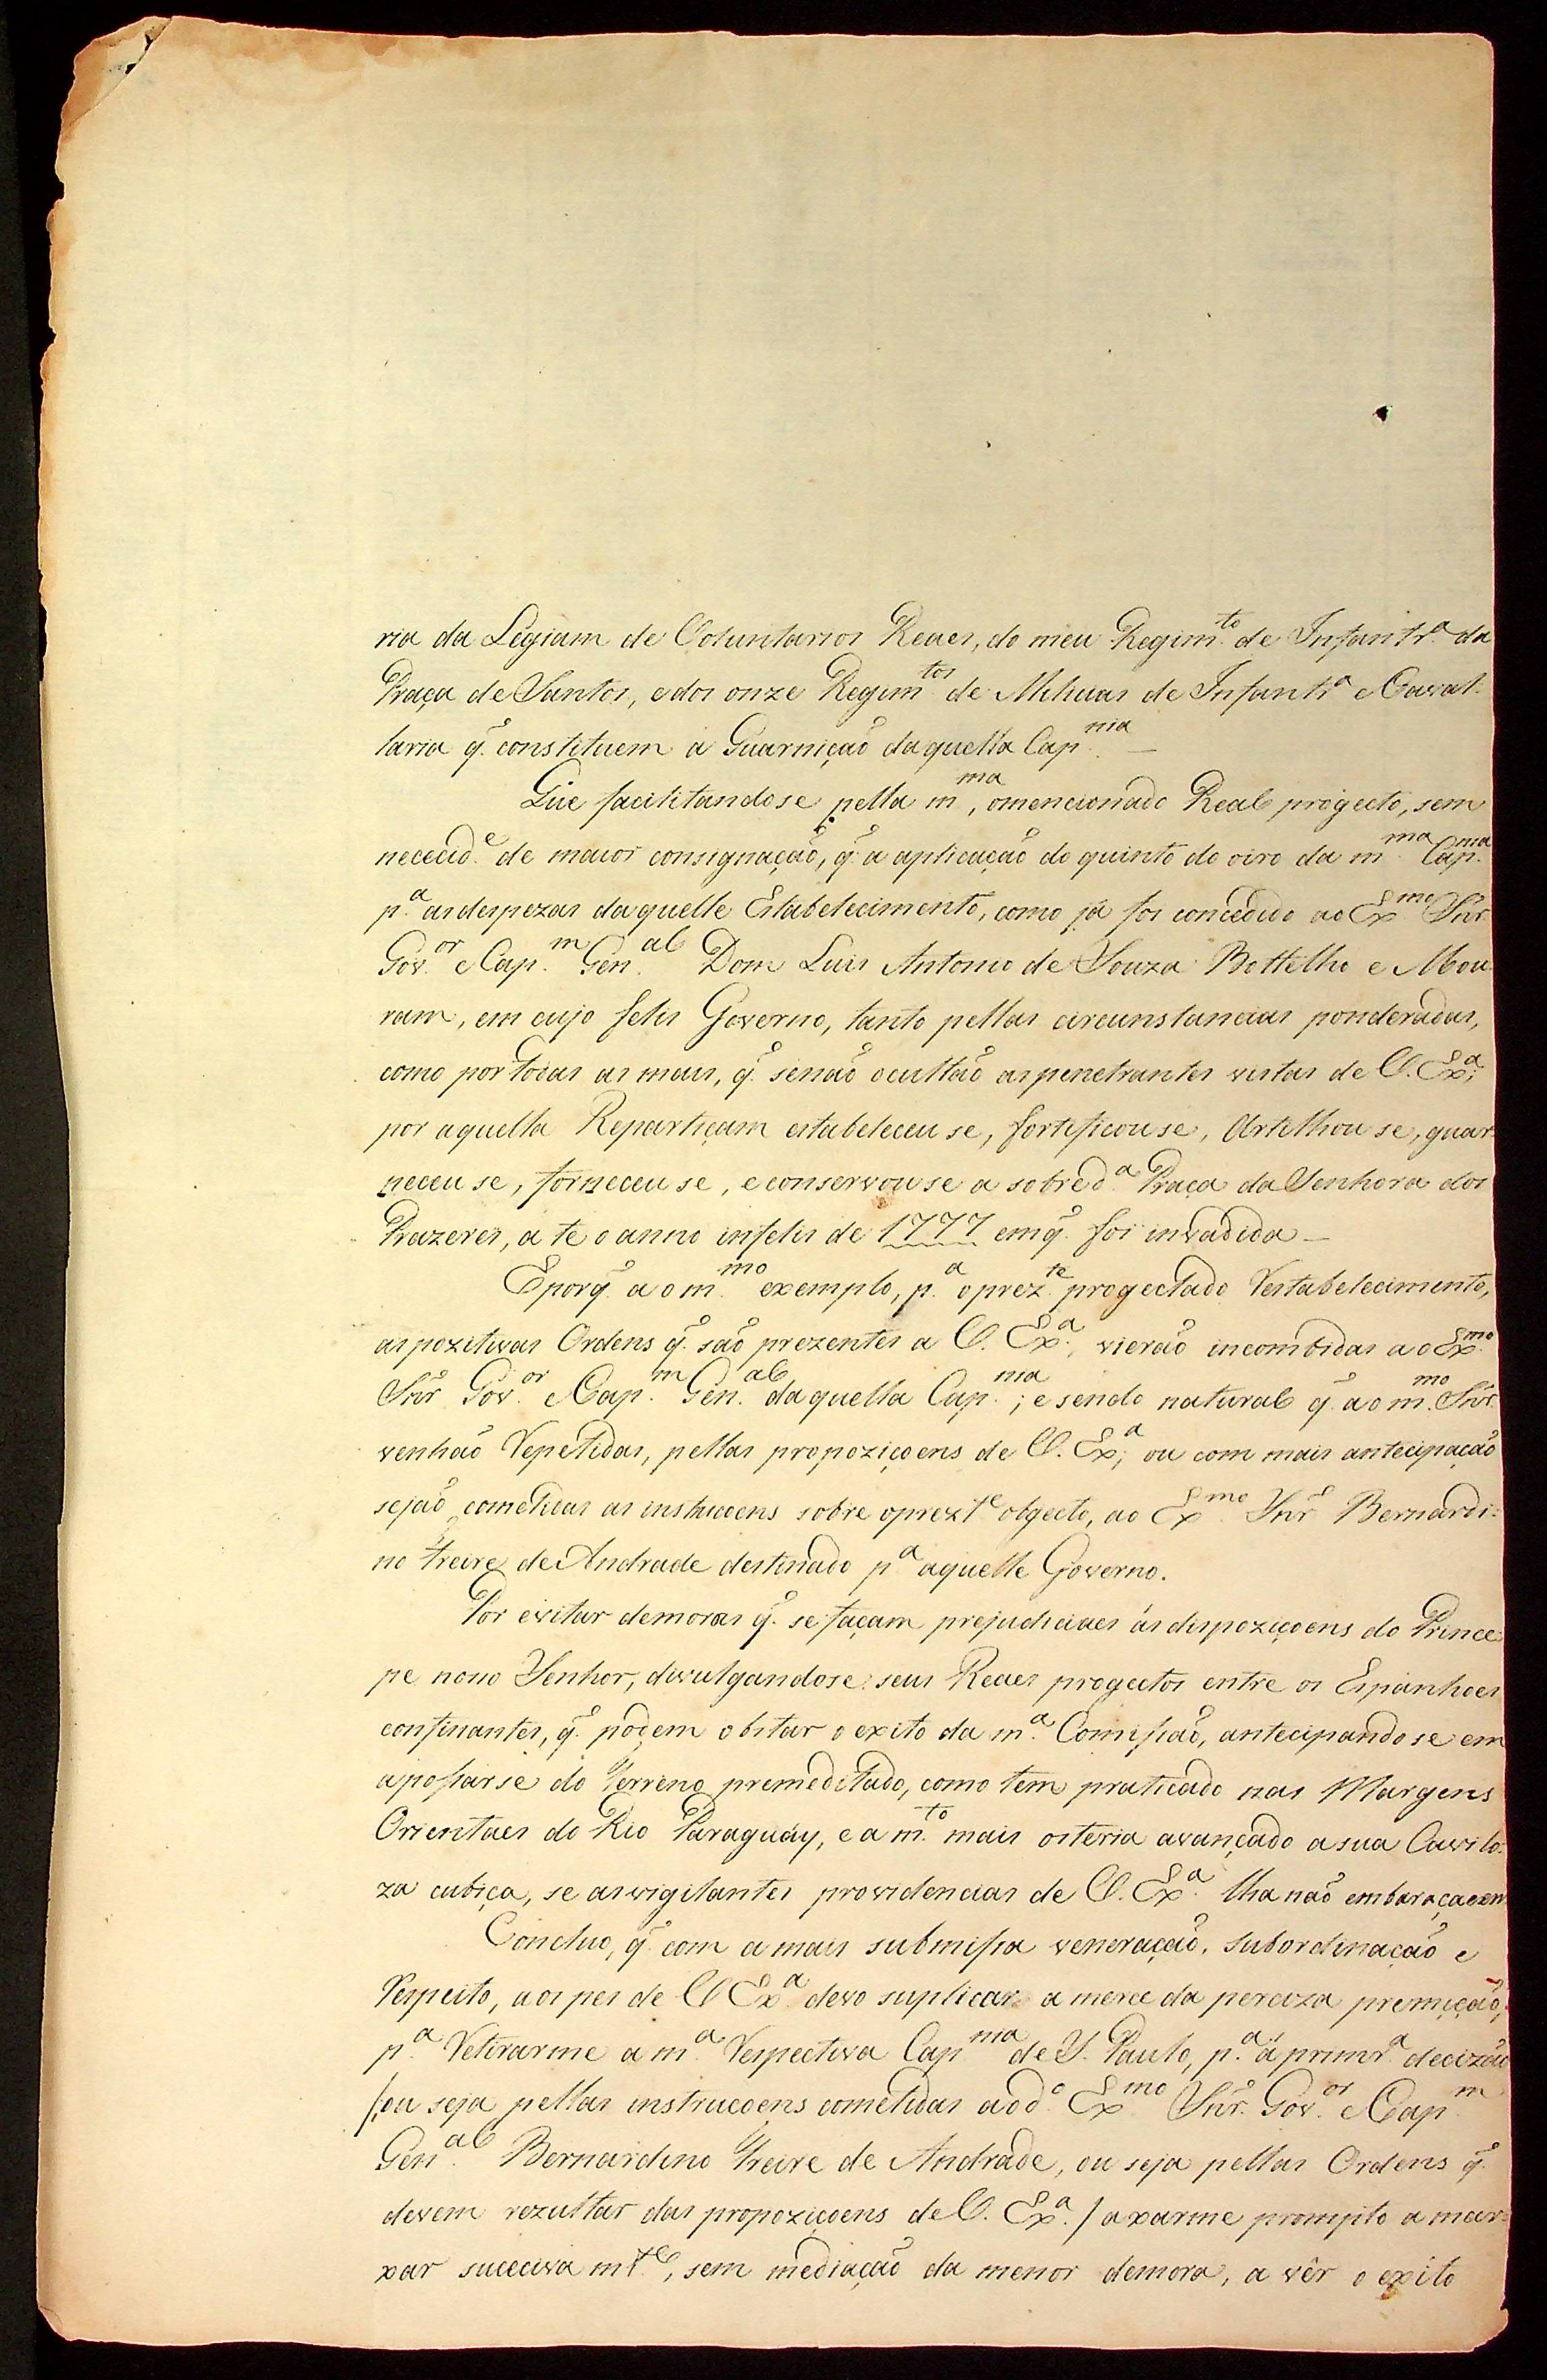 ria da Legiam de Voluntarios Reaes, do meu Regim.to de Infantr.a da
Praça de Santos, e dos onze Regim.tos de Milicias de Infantr.a e Caval-
laria q̃. constituem a Guarniçaõ daquella Cap.nia —
Que facilitandose pella m.ma, omencionado Real progecto, sem
nececid.e de maior consignaçaõ, q̃. a aplicaçaõ do quinto do oiro da m.ma Cap.nia
p.a as despezas daquelle Estabelecimento, como já foi concedido ao Ex.mo Snr̃.
Gov.or e Cap.m Gen.al Dom Luis Antonio de Souza Bottelho e Mou-
ram, em cujo felis Governo, tanto pellas circunstancias ponderadas,
como por todas as mais, q̃. senaõ ocultaõ as penetrantes vistas de V. Ex.a;
por aquella Repartiçam estabeleceu se, fortificou se, Artilhou se, guar-
neceu se, forneceu se, e conservou se a sobred.a Praça da Senhora dos
Prazeres, a te o anno infelis de 1777 emq̃. foi invadida —
E porq̃. a o m.mo exemplo, p.a oprez.te progectado Restabelecimento,
as pozitivas Ordens q̃. saõ prezentes a V. Ex.a, vieraõ incombidas a o Ex.mo
Snr̃ Gov.or e Cap.m Gen.al daquella Cap.nia; e sendo natural q̃. a o m.mo Snr̃.
venhaõ Repetidas, pellas propoziçoens de V. Ex.a; ou com mais antecipaçaõ
sejaõ cometidas as instrucoens sobre oprezt.e obgecto, ao Ex.mo Snr̃ Bernardi-
no Freire de Andrade destinado p.a aquelle Governo.
Por evitar demoras q̃. se façam prejudiciaes ás dispoziçoens do Prince-
pe nosso Senhor, divulgandose seus Reaes progectos entre os Espanhoes
confinantes, q̃. podem obstar o exito da m.a Comissaõ, antecipando se em
apossarse do Terreno premeditado, como tem praticado nas Margens
Orientaes do Rio Paraguáy, e a m.to mais osteria avançado a sua Cavilo-
za cubiça, se as vigilantes providencias de V. Ex.a lha naõ embaraçacem
Concluo, q̃. com a mais submissa veneraçaõ, subordinaçaõ e
Respeito, a os pes de V Ex.a devo suplicar a merce da perciza premiçaõ,
p.a Retirarme a m.a Respectiva Cap.nia de S. Paulo, p.a á primr.a decizaõ
/ou seja pellas instrucoens cometidas a o d.o Ex.mo Snr̃. Gov.or e Cap.m
Gen.al Bernardino Freire de Andrade, ou seja pellas Ordens q̃.
devem rezultar das propoziçoens de V. Ex.a / axarme prompto a mar-
xar sucecivamt.e, sem mediaçaõ da menor demora, a vêr o exito